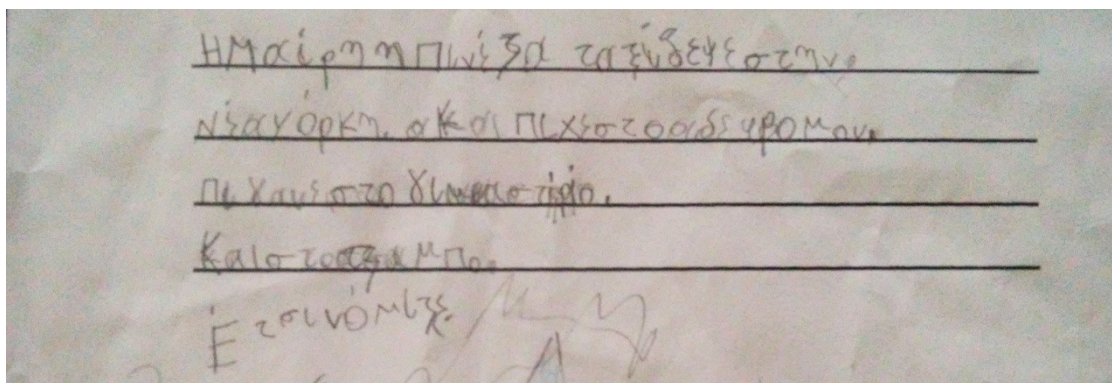 Η Μαίρη η Πινέζα ταξίδεψε στην.
Νέα γόρκη. ακαι πιχε στο αδεφρομον.
πιχανε στο γιμναστίριο.
Και στο τσαμπο.
Έτσι νόμιζε.